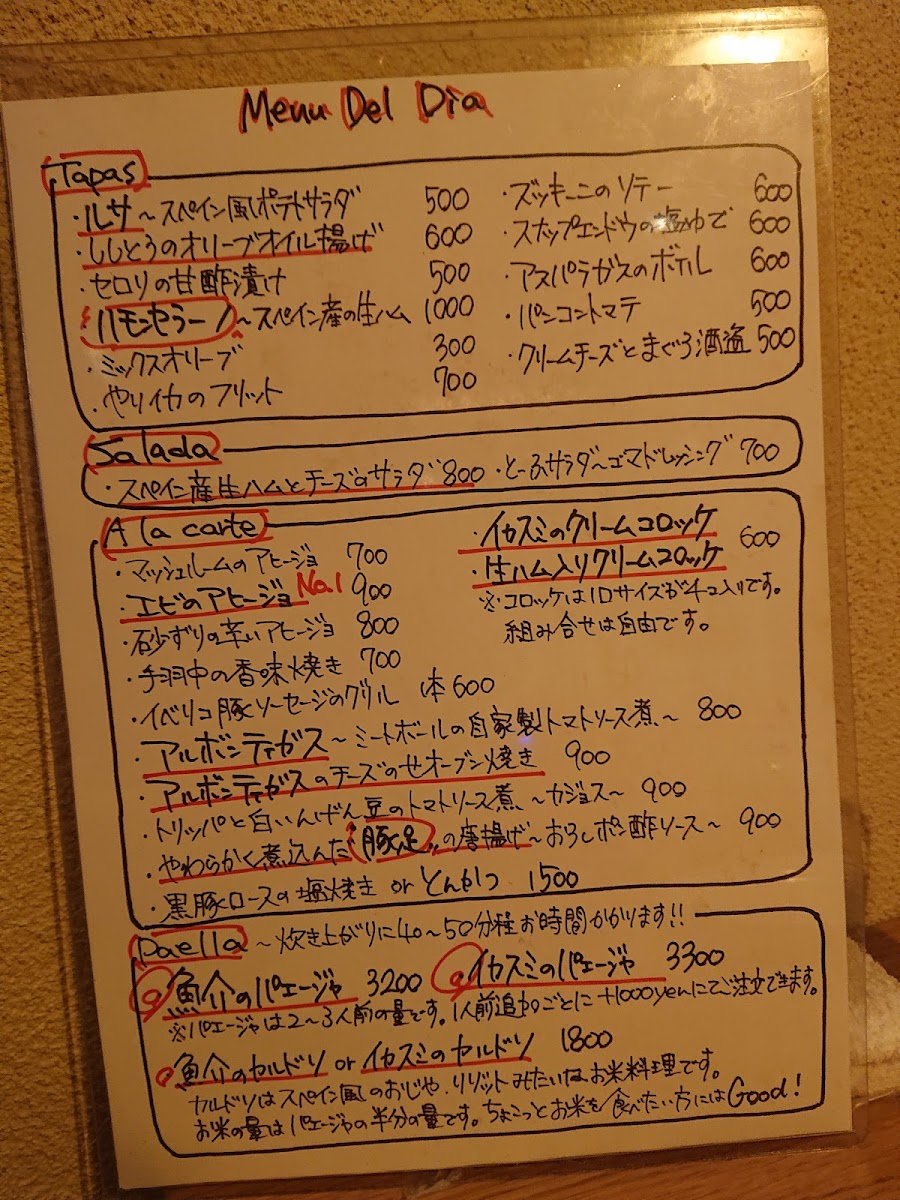 Menu Del Dia
Tapas
・ルサ～スペイン風ポテトサラダ 500
・ししとうのオリーブオイル揚げ 600
・セロリの甘酢漬け 500
・ハモンセラーノ～スペイン産の生ハム 1000
・ミックスオリーブ 300
・やりイカのフリット 700
・ズッキーニのソテー 600
・スナップエンドウの塩ゆで 600
・アスパラガスのボイル 600
・パンコントマテ 500
・クリームチーズとまぐろ酒盗 500
Salada
・スペイン産生ハムとチーズのサラダ 800 ・とーふサラダ～ゴマドレッシング 700
A la carte
・マッシュルームのアヒージョ 700
・エビのアヒージョ No.1 900
・砂ずりの辛いアヒージョ 800
・手羽中の香味焼き 700
・イベリコ豚ソーセージのグリル 1本600
・アルボンディガス～ミートボールの自家製トマトソース煮～ 800
・アルボンディガスのチーズのせオーブン焼き 900
・トリッパと白いんげん豆のトマトソース煮～カジョス～ 900
・やわらかく煮込んだ"豚足"の唐揚げ～おろしポン酢ソース～ 900
・黒豚ロースの塩焼き or とんかつ 1500
・イカスミのクリームコロッケ
・生ハム入りクリームコロッケ 600
※コロッケは1口サイズが4コ入りです。
組み合せは自由です。
Paella ～炊き上がりに40～50分程お時間かかります!!
魚介のパエージャ 3200 イカスミのパエージャ 3300
※パエージャは2～3人前の量です。1人前追加ごとに+1000yenにてご注文できます。
魚介のカルドソ or イカスミのカルドソ 1800
カルドソはスペイン風のおじや、リゾットみたいなお米料理です。
お米の量はパエージャの半分の量です。ちょこっとお米を食べたい方にはGood!